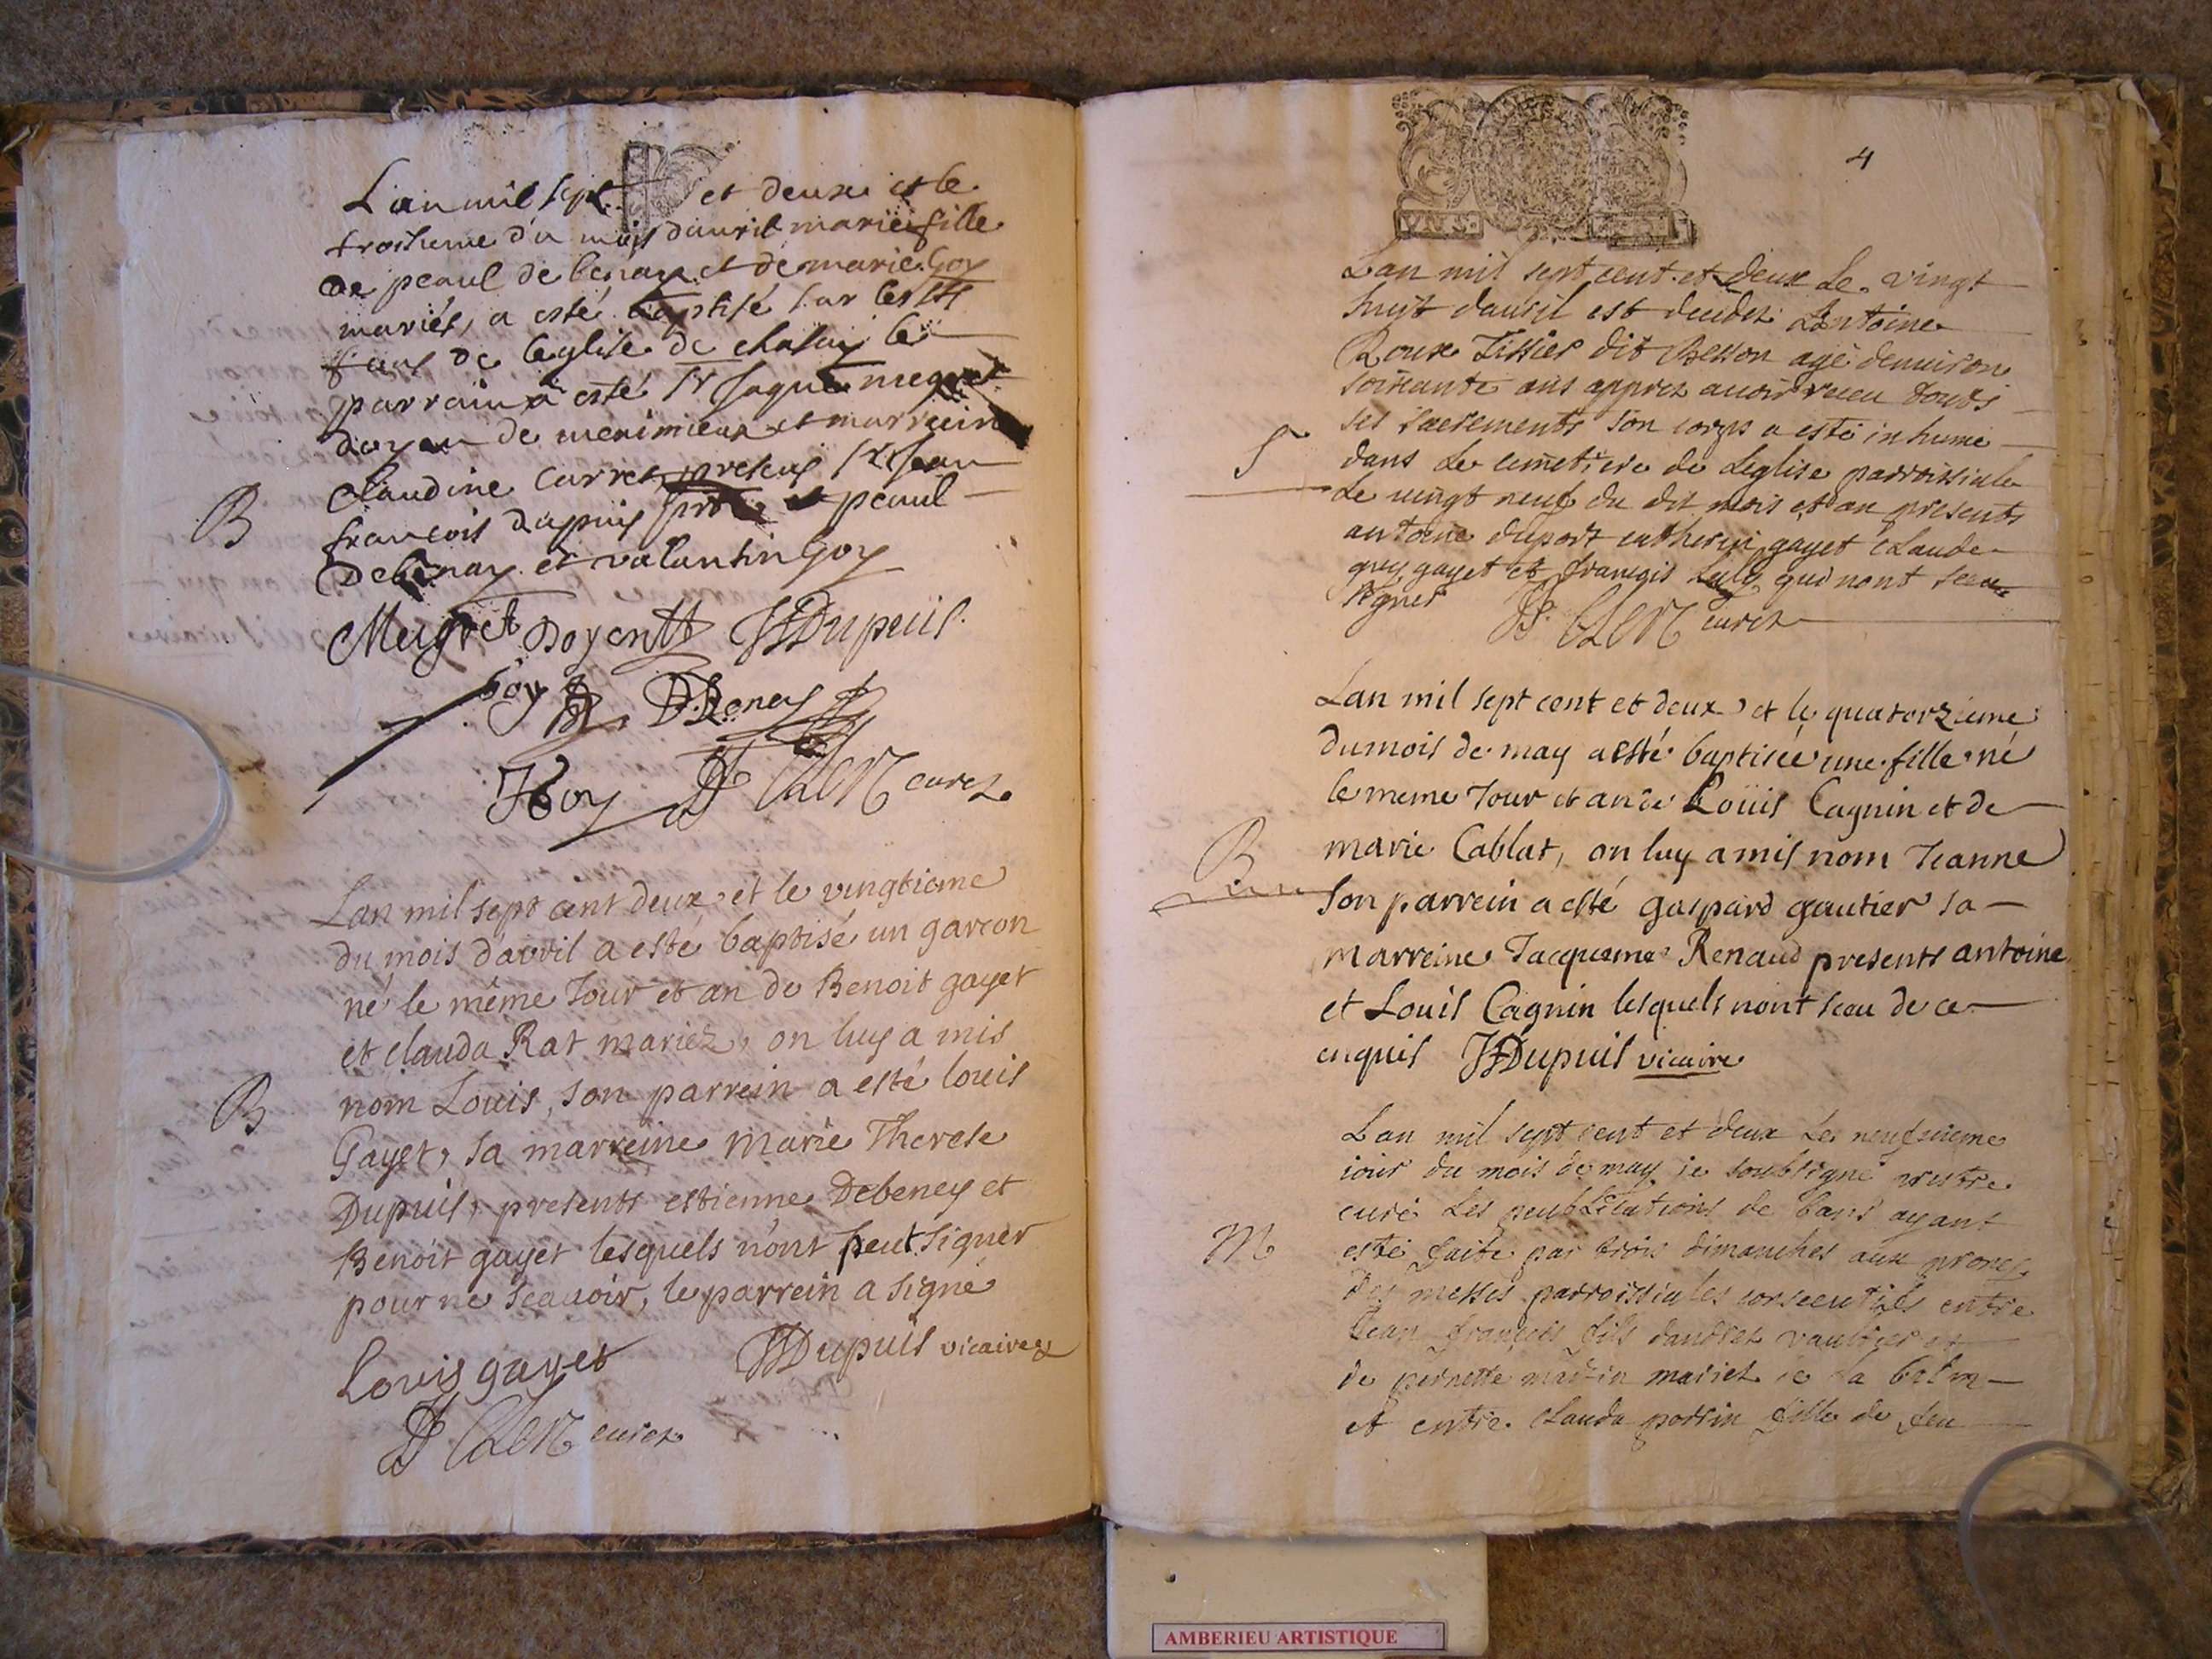 L'an mil sept et deux et le
troisieme du mois dauril marie fille
de peaul de benay et de marie Goy
mariés, a esté baptisé sur les
fons de leglise de le
parrain a esté Sr Jaque
doyen de merimieux et marreine
Claudine Carret presens Sr Jean
francois dupuis et peaul
Debenay et valantin Goy
B
Meigret Doyen JFDupuis
Goy DeBeney
Goy Clerc curez
Lan mil sept cent deux et le vingtieme
du mois d'avril a esté baptisé un garcon
né le même Jour et an de Benoit gayet
et clauda Rat mariez, on luy a mis
nom Louis, son parrein a esté louis
B
Gayet, sa marreine Marie Therese
Dupuis, presents estienne Debeney et
Benoit gayet lesquels n'ont peut signer
pour ne scauoir, le parrein a signé
Louis gayet JFDupuis vicaire
Clerc curez
4
Lan mil sept cent et deux Le vingt
huit dauril est decedez Antoine
Roux Tissier dit Besson agé denuiron
soixante ans apprez auoir receu touts
ses sacrements son corps a esté inhumé
S
dans Le cimetiere de Leglise parroissiale
Le vingt neuf du dit mois et an presents
antoine duport catherin gayet Claude
guy gayet et françois qui nont sceu
signer Clerc curez
Lan mil sept cent et deux et le quatorzieme
du mois de may a esté baptisée une fille né
le meme Jour et an de Loüis Cagnin et de
marie Cablat, on luy a mis nom Jeanne
B
son parrein a esté gaspard gautier sa
marreine Jacqueme Renaud presents antoine
et Louis Cagnin lesquels nont sceu de ce
enquis JFDupuis vicaire
Lan mil sept cent et deux Le neufuieme
iour du mois de may ie soubsigné prestre
curé Les peublications de bans ayant
M
esté faite par trois dimanches aux prones
des messes parroissiales consecutifes entre
Jean françois fils dandrez vaultier et
de pernette martin mariez de La balm
et entre Clauda perrin fille de feu
AMBERIEU ARTISTIQUE